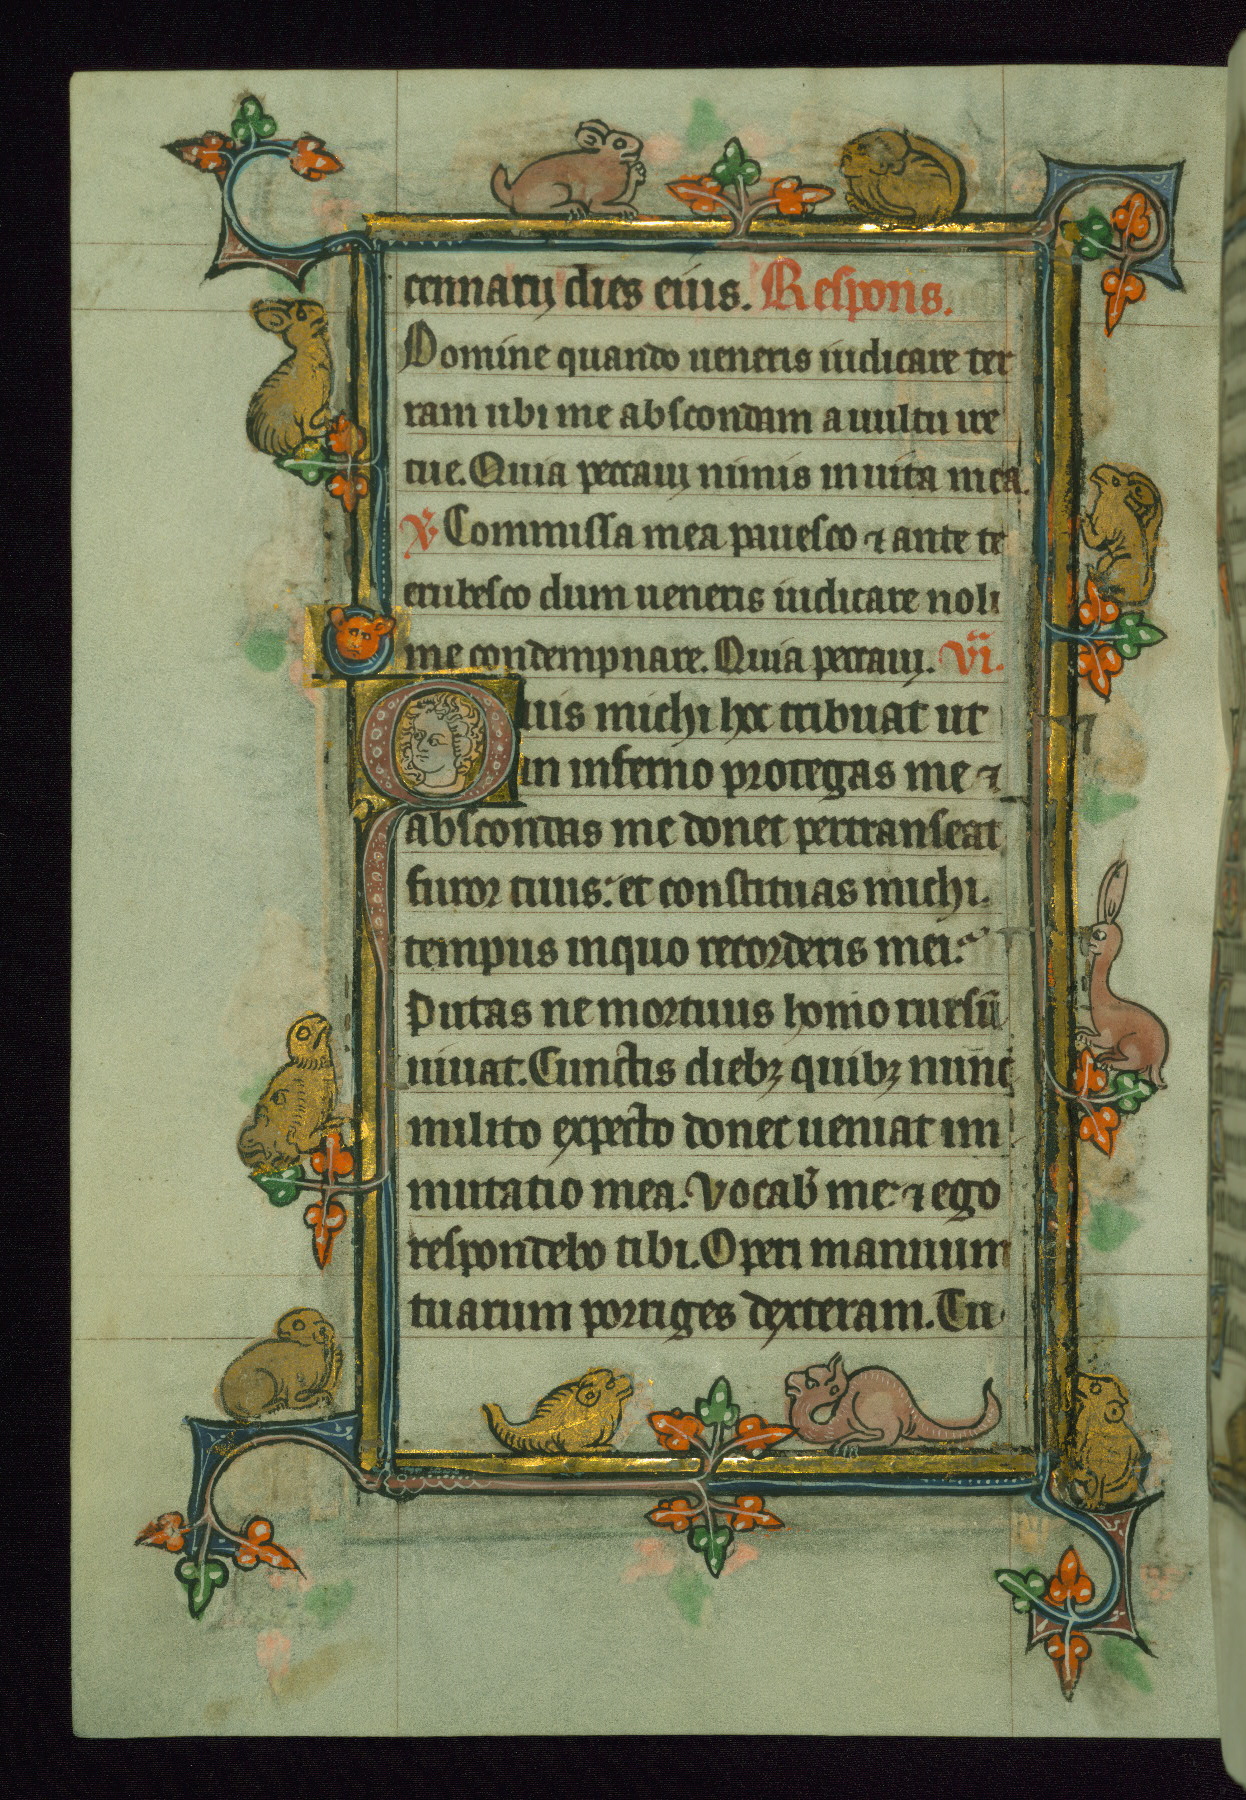 cennarij dies eius. Respons.
Domine quando ueneris iudicare ter
ram ubi me abscondam a uultu ire
tue. Quia peccauj nimis in uita mea.
V Commissa mea pauesco ⁊ ante te
erubesco dum ueneris iudicare noli
me condempnare. Quia peccauj. vi.
Quis michi hoc tribuat ut
in inferno protegas me ⁊
abscondas me donet pertranseat
furor tuus: et constituas michi.
tempus inquo recorderis mei:
Putas ne mortuus homo rursū
uiuat. Cunctis diebꝫ quibꝫ nunc
milito expecto donec ueniat im
mutatio mea. Vocab me ⁊ ego
respondebo tibi. Operi manuum
tuarum porriges dexteram. Tu